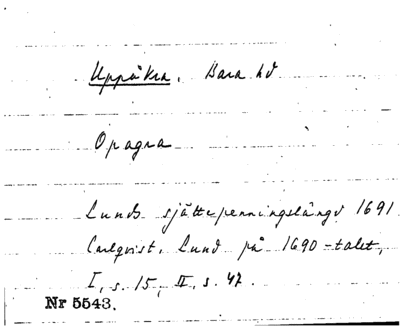 Uppåkra, Bara hd
Opagra
Lunds sjättepenningslängd 1691
Carlqvist, Lund på 1690-talet,
I, s. 15, II, s. 47.
Nr 5543.